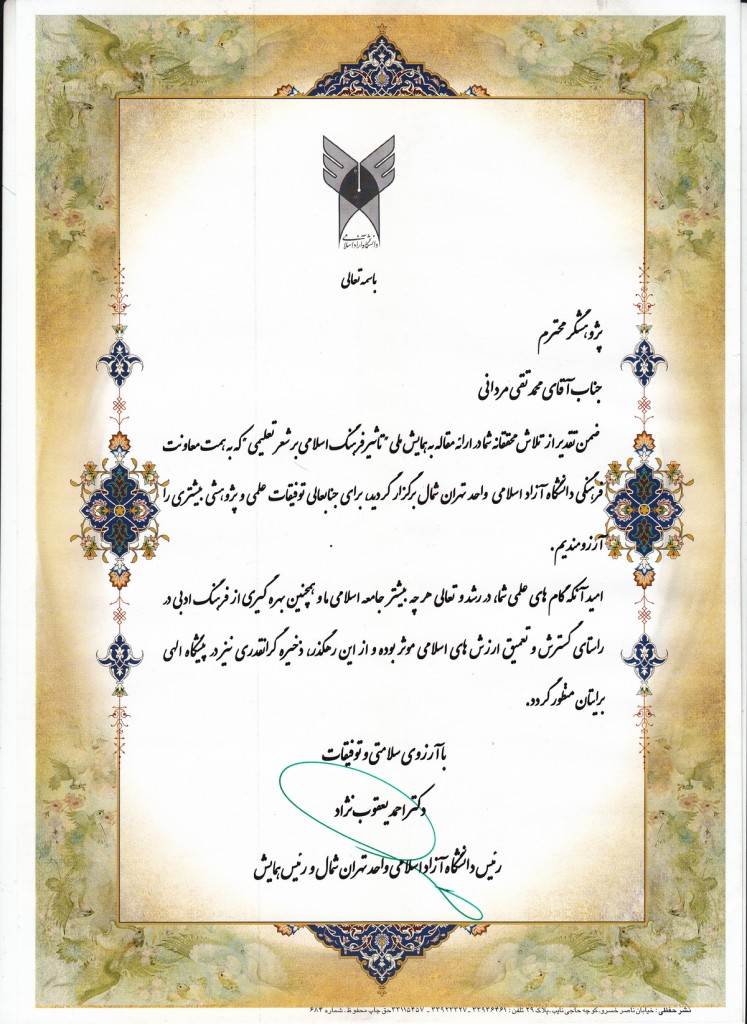 دانشگاه آزاد اسلامی
باسمه تعالی
پژوهشگر محترم
جناب آقای محمد تقی مردانی
ضمن تقدیر از تلاش محققانه شما در ارائه مقاله به همایش ملی "تاثیر فرهنگ اسلامی بر شعر تعلیمی" که به همت معاونت
فرهنگی دانشگاه آزاد اسلامی واحد تهران شمال برگزار گردید، برای جنابعالی توفیقات علمی و پژوهشی بیشتری را
آرزومندیم.
امید آنکه گام های علمی شما، در رشد و تعالی هر چه بیشتر جامعه اسلامی ما و همچنین بهره گیری از فرهنگ ادبی در
راستای گسترش و تعمیق ارزش های اسلامی موثر بوده و از این رهگذر، ذخیره گرانقدری نیز در پیشگاه الهی
برایتان منظور گردد.
با آرزوی سلامتی و توفیقات
دکتر احمد یعقوب نژاد
رئیس دانشگاه آزاد اسلامی واحد تهران شمال و رئیس همایش
نشر حفظی : خیابان ناصر خسرو، کوچه حاجی نایب، پلاک ۲۹ تلفن : ۳۳۹۳۶۴۶۱ ـ ۳۳۹۲۳۳۲۷ ـ ۳۳۱۱۵۴۵۷ حق چاپ محفوظ. شماره ۶۸۴